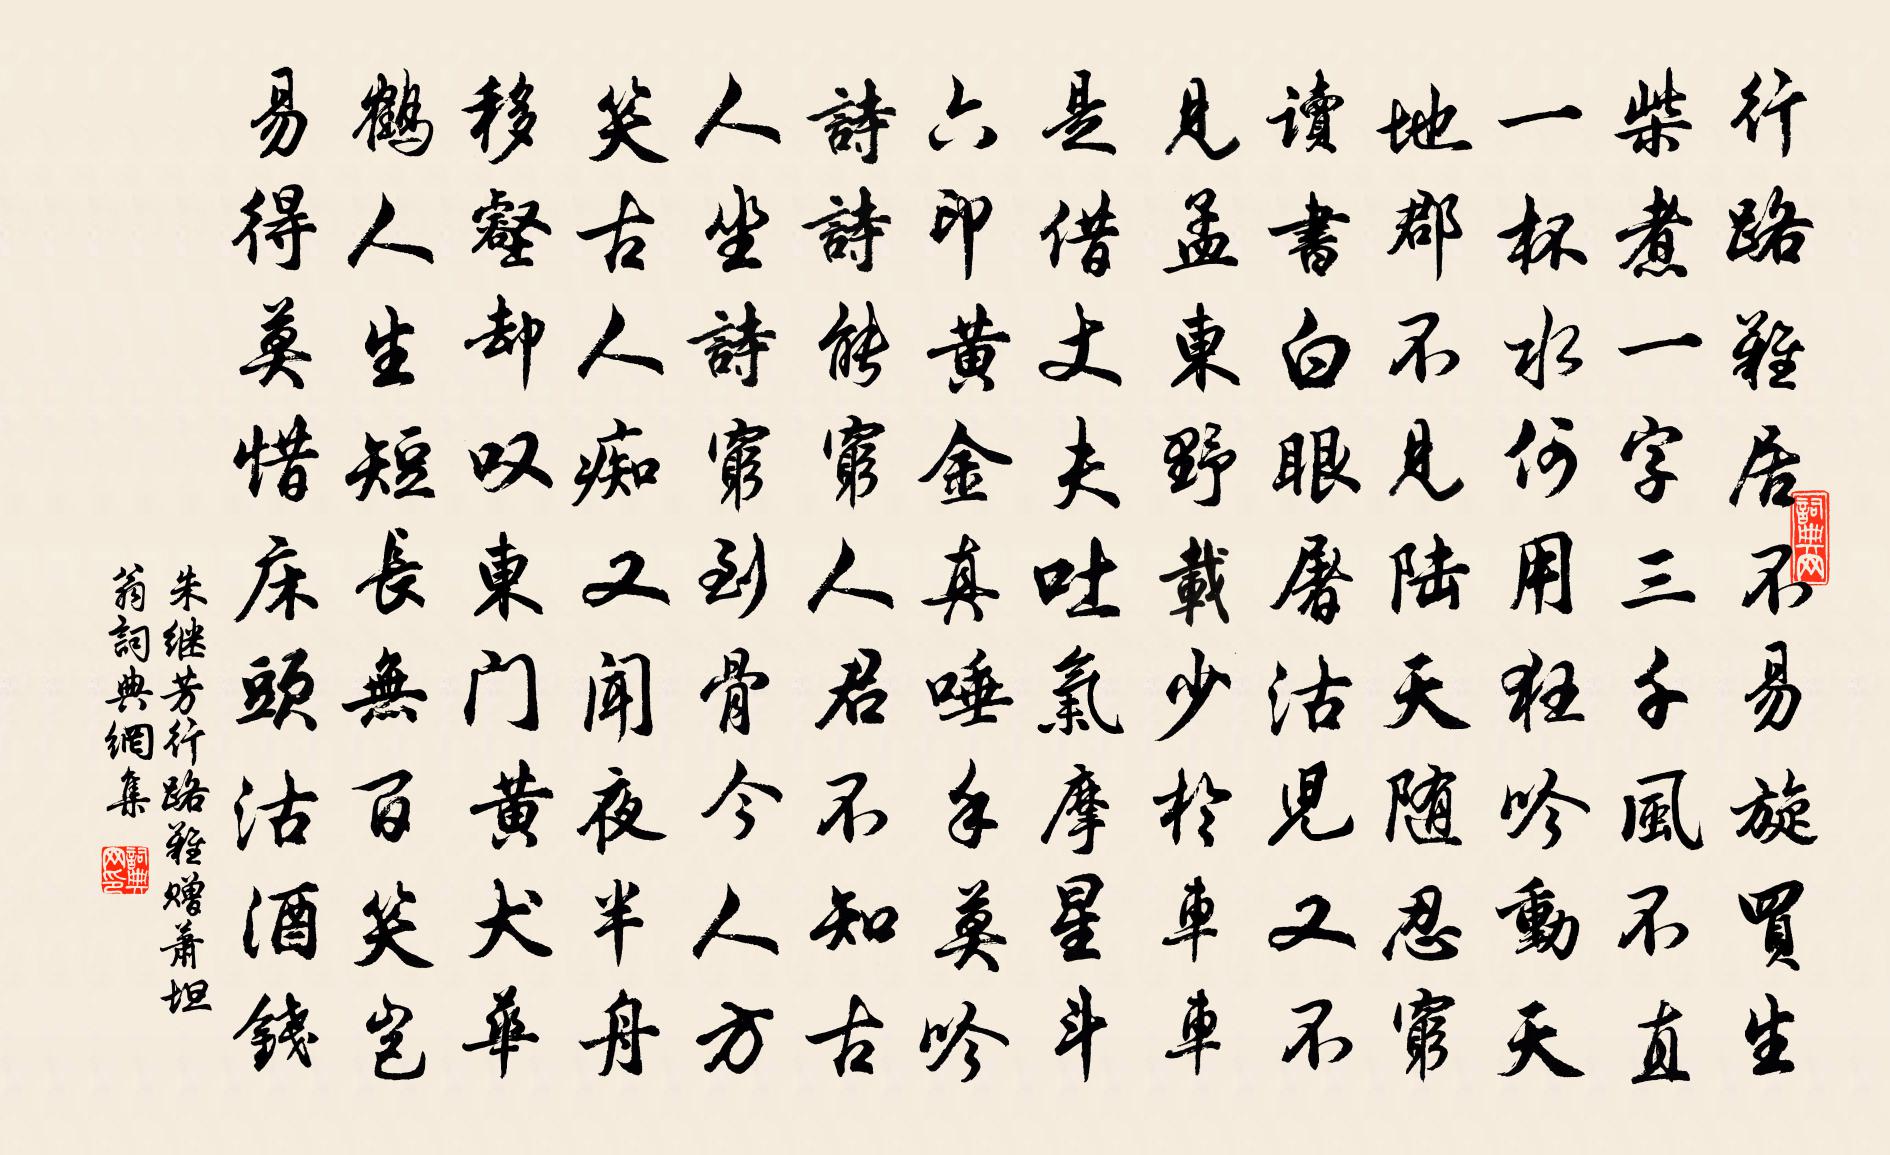 行路難居不易旋買生
柴煮一字三千風不直
一杯水何用狂吟動天
地郡不見陆天随忍窮
讀書白眼屠沽児又不
見孟東野載少於車車
是借丈夫吐氣摩星斗
六印黄金真唾手莫吟
詩詩能窮人君不知古
人坐詩窮到骨今人方
笑古人痴又闻夜半舟
移壑却叹東门黄犬華
鶴人生短長無百笑岂
易得莫惜床頭沽酒錢
朱继芳行路難赠萧坦
翁詞典網集
詞典网
詞典网印